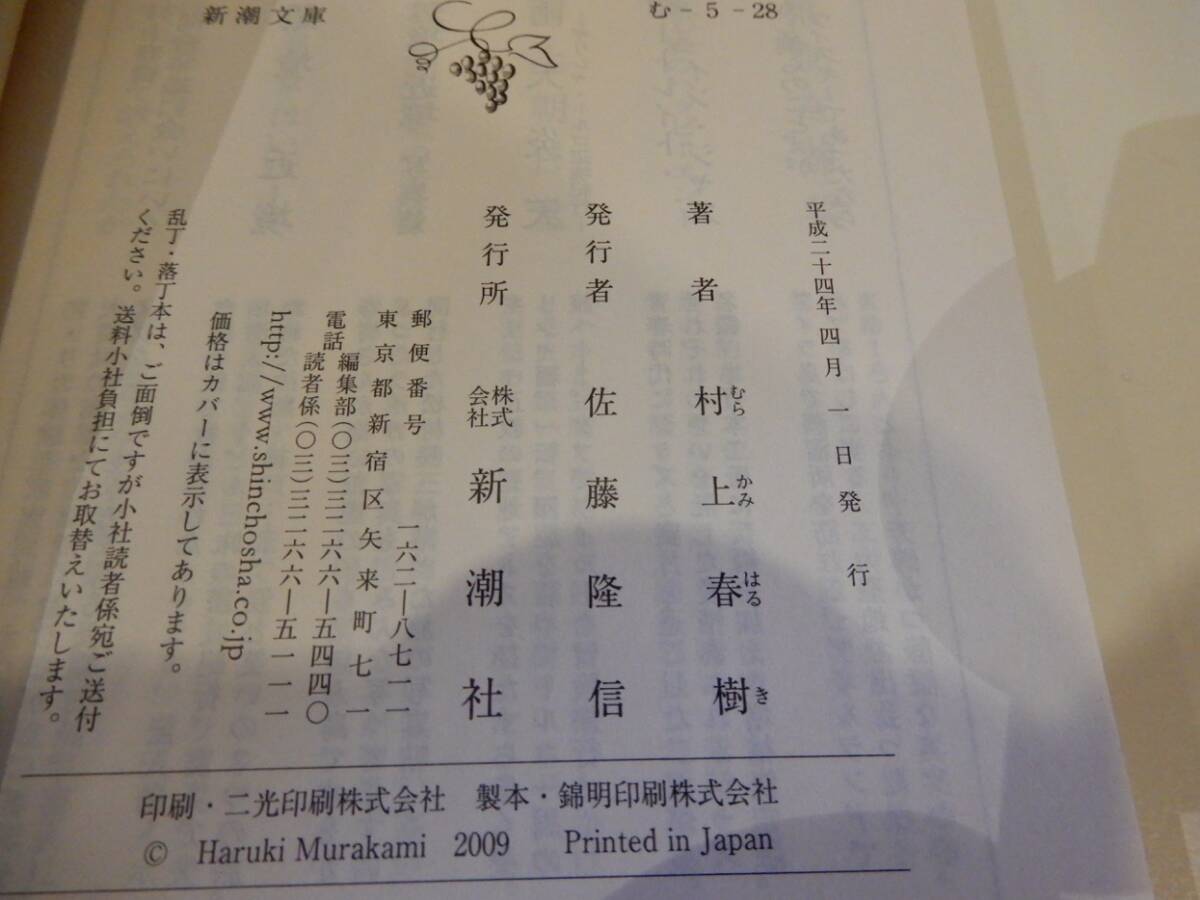 新潮文庫
む-5-28
平成二十四年 四月 一日 発行
著者 村上春樹
むら かみ はる き
発行者 佐藤隆信
発行所 株式会社 新潮社
郵便番号 一六二―八七一一
東京都新宿区矢来町七一
電話 編集部(〇三)三二六六―五四四〇
読者係(〇三)三二六六―五一一一
http://www.shinchosha.co.jp
価格はカバーに表示してあります。
乱丁・落丁本は、ご面倒ですが小社読者係宛ご送付
ください。送料小社負担にてお取替えいたします。
印刷・二光印刷株式会社 製本・錦明印刷株式会社
© Haruki Murakami 2009 Printed in Japan